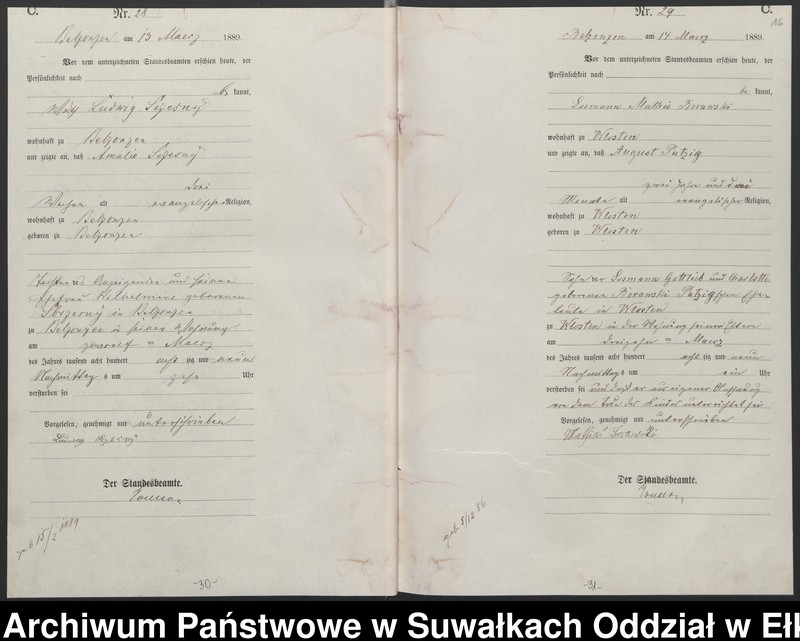 C.
Nr. 28
Belzonzen am 13 Maerz 1889.
Vor dem unterzeichneten Standesbeamten erschien heute, der
Persönlichkeit nach
be kannt,
Ludwig
wohnhaft zu Belzonzen
und zeigte an, daß Amalie
drei
Wochen alt evangelischer Religion,
wohnhaft zu Belzonzen
geboren zu Belzonzen
Tochter des und seiner
Ehefrau Wilhelmine geborenen
in Belzonzen
zu Belzonzen in seiner Wohnung
am zwoelf ten Maerz
des Jahres tausend acht hundert acht zig und neun
Nachmittag s um zehn Uhr
verstorben sei
Vorgelesen, genehmigt und unterschrieben
Ludwig
Der Standesbeamte.
geb. 15/2 1889
-30-
Nr. 29
C.
16
Belzonzen am 14 Maerz 1889.
Vor dem unterzeichneten Standesbeamten erschien heute, der
Persönlichkeit nach
be kannt,
Losmann Mathis Borawski
wohnhaft zu Wlosten
und zeigte an, daß August Putzig
zwei Jahre und drei
Monate alt evangelischer Religion,
wohnhaft zu Wlosten
geboren zu Wlosten
Sohn der Losmann Gottlieb und Charlotte
geborenen Borawski Putzigschen Ehe-
leute in Wlosten
zu Wlosten in der Wohnung seiner Eltern
am dreizehn ten Maerz
des Jahres tausend acht hundert acht zig und neun
Nachmittags um ein Uhr
verstorben sei und daß er aus eigener
von dem Tode des Kindes unterrichtet sei
Vorgelesen, genehmigt und unterschrieben
Mathis Borawski
Der Standesbeamte.
geb. 5/12 86
-31-
Archiwum Państwowe w Suwałkach Oddział w Eł